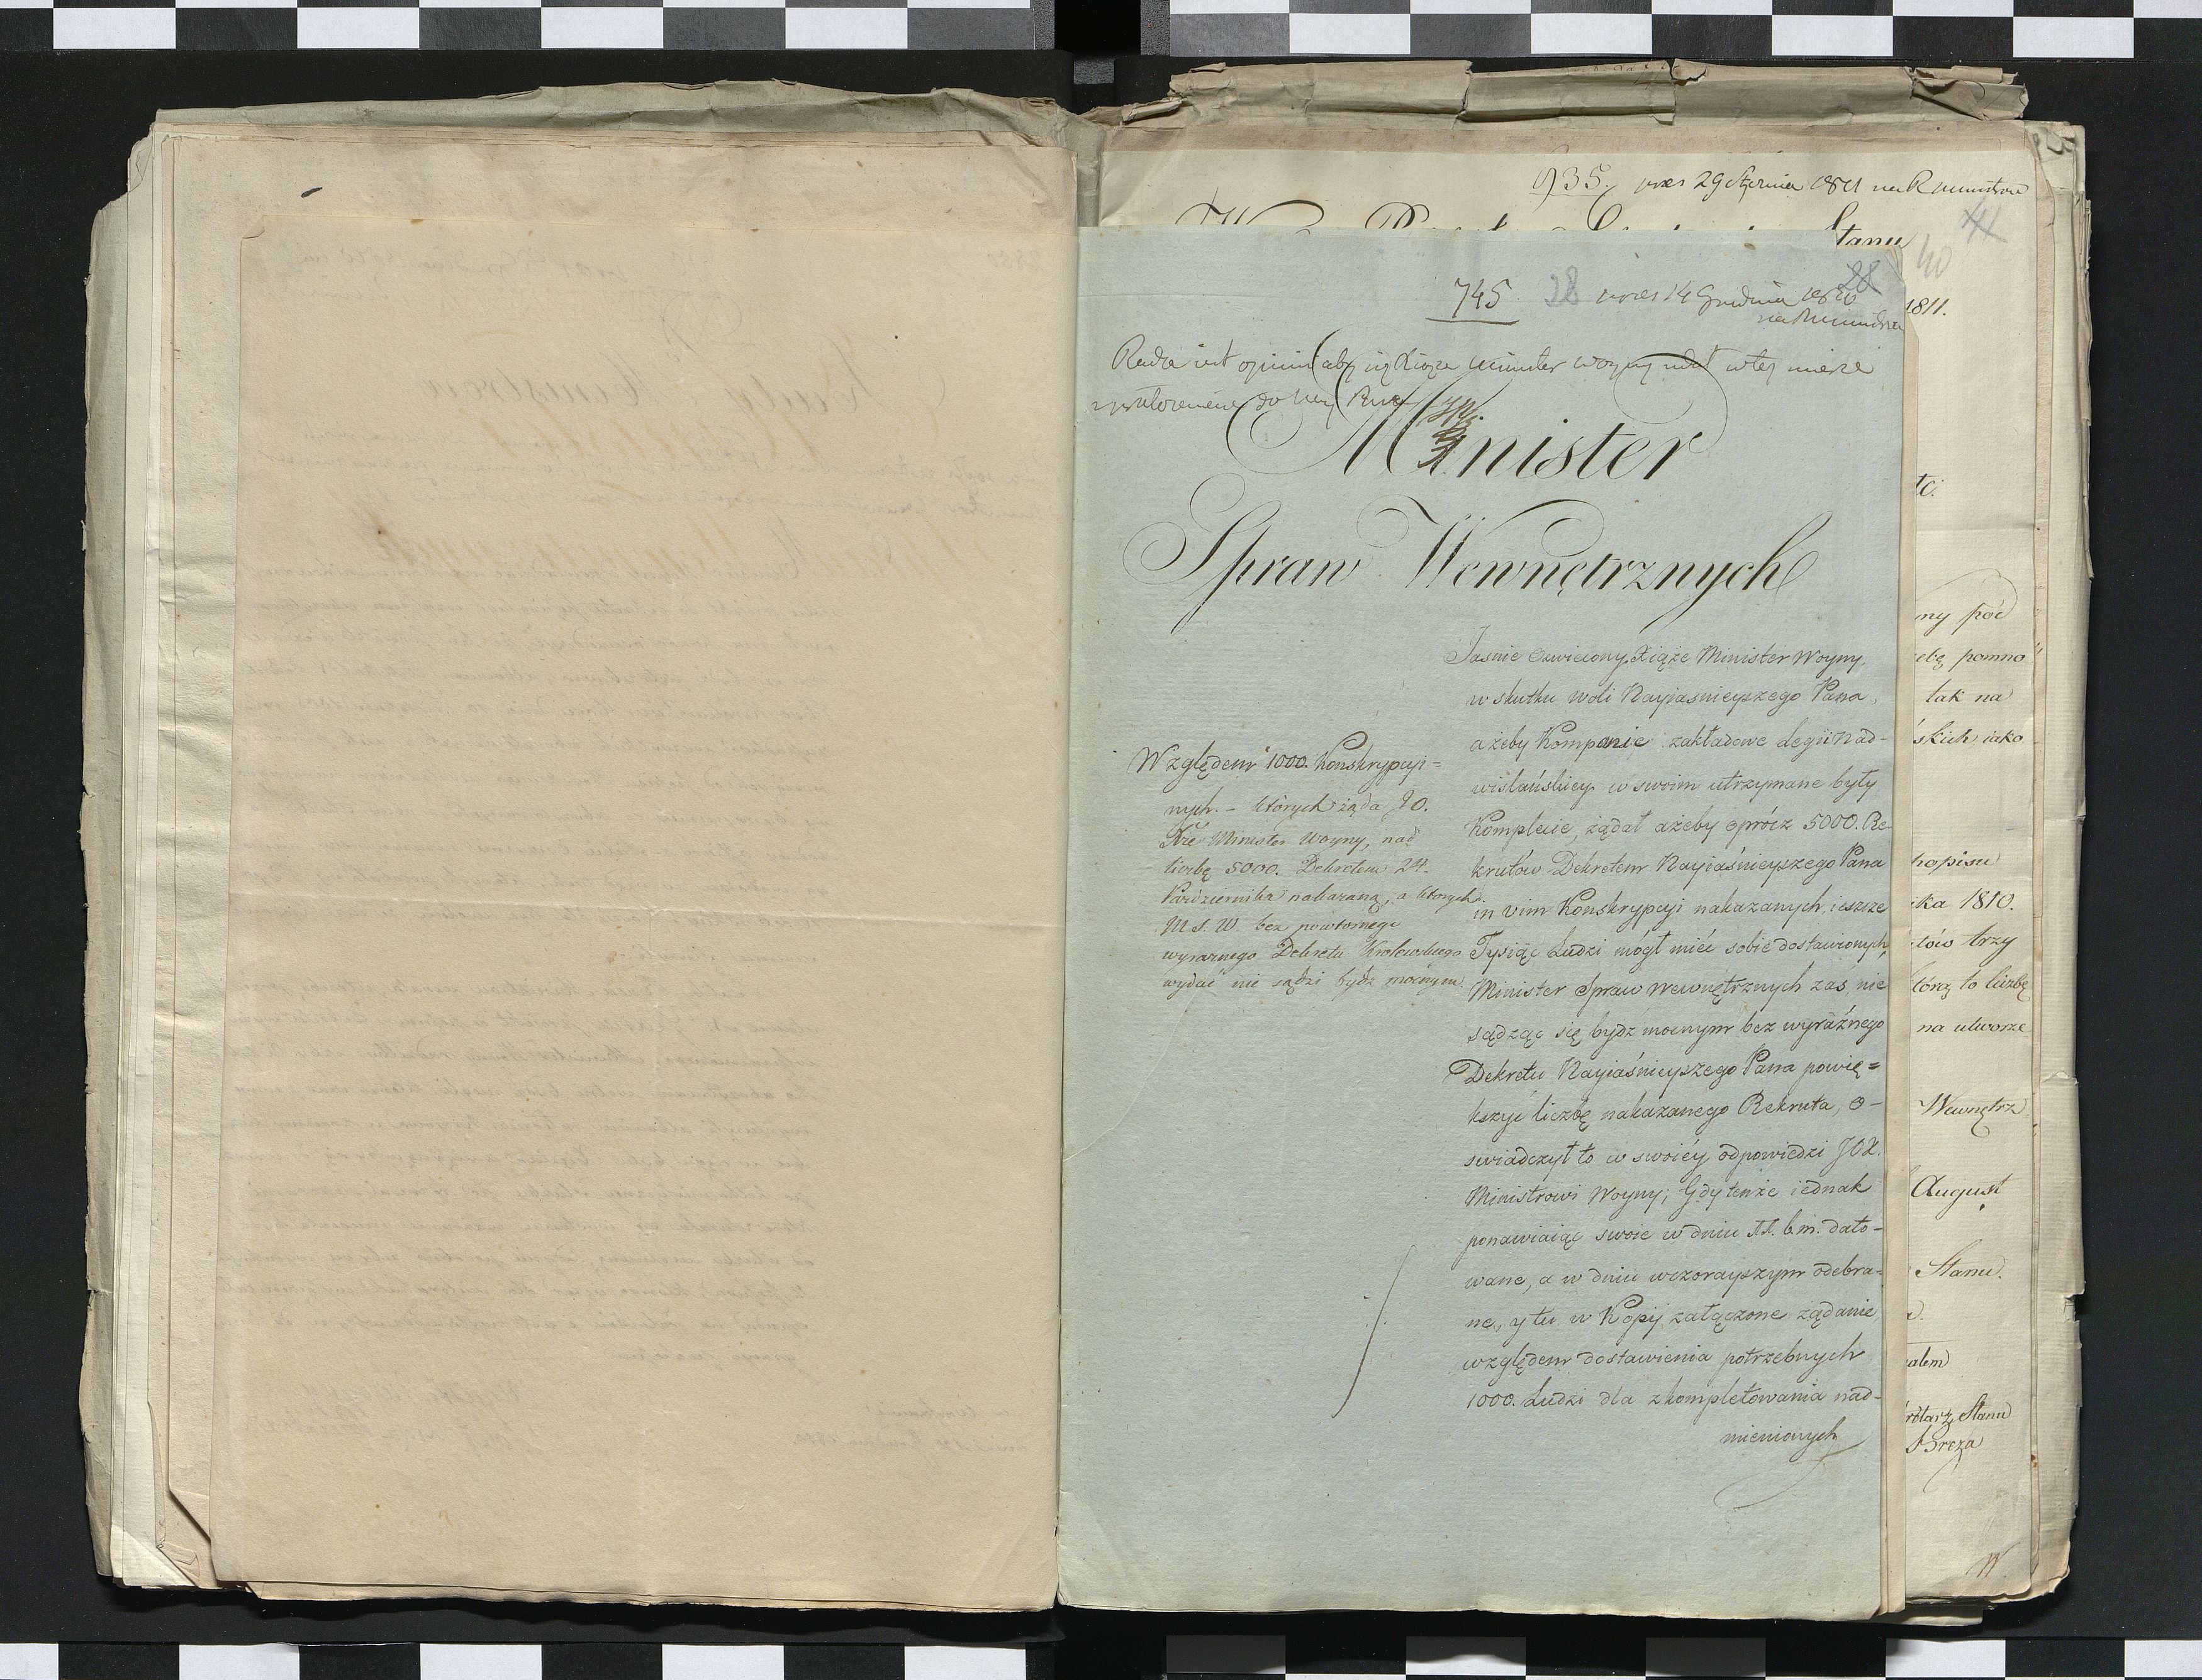 935. prez 29 Stycznia 1811 na R Ministrów
41
40
Stanu
1811.
745 28 prez 14 Grudnia 1810 28
na R Ministrów
Rada iest opinii aby się Xiąże Minister Woyny udał w tej mierze
z przełożeniem do Nay. Pana
Minister
Spraw Wewnętrznych
Względem 1000. Konskrypcyi=
nych. – których żąda J O.
Xże Minister Woyny, nad
liczbę 5000. Dekretem 24.
Października nakazaną, a których
M. S. W. bez powtornego
wyraznego Dekretu Krolewskiego
wydać nie sądzi bydź mocnym.
Jasnie Oswiecony Xiąże Minister Woyny,
w skutku woli Nayiasnieyszego Pana,
ażeby Kompanie zakładowe Legii Nad-
wiślańskiey w swoim utrzymane były
Komplecie, żądał ażeby oprócz 5000. Re-
krutów Dekretem Nayiaśnieyszego Pana
in vim Konskrypcyi nakazanych, ieszcze
Tysiąc Ludzi mógł mieć sobie dostawionych,
Minister Spraw Wewnętrznych zaś nie
sądząc się bydz mocnym bez wyraźnego
Dekretu Nayiaśnieyszego Pana powię=
kszyć liczbę nakazanego Rekruta, o-
swiadczył to w swoiéy odpowiedzi JOX.
Ministrowi Woyny; Gdy tenże iednak
ponawiaiąc swoie w dniu 11. b. m. dato-
wane, a w dniu wczorayszym odebra-
ne, y tu w Kopij załączone żądanie
względem dostawienia potrzebnych
1000. Ludzi dla zkompletowania nad-
mienionych
tc.
my pod
ebę pomno
tak na
skich iako
hopisu
ika 1810.
tów trzy
tórą to liczbę
na utworze
Wewnętrz
August
Stanu.
alem
rotarz Stanu
Breza
W.